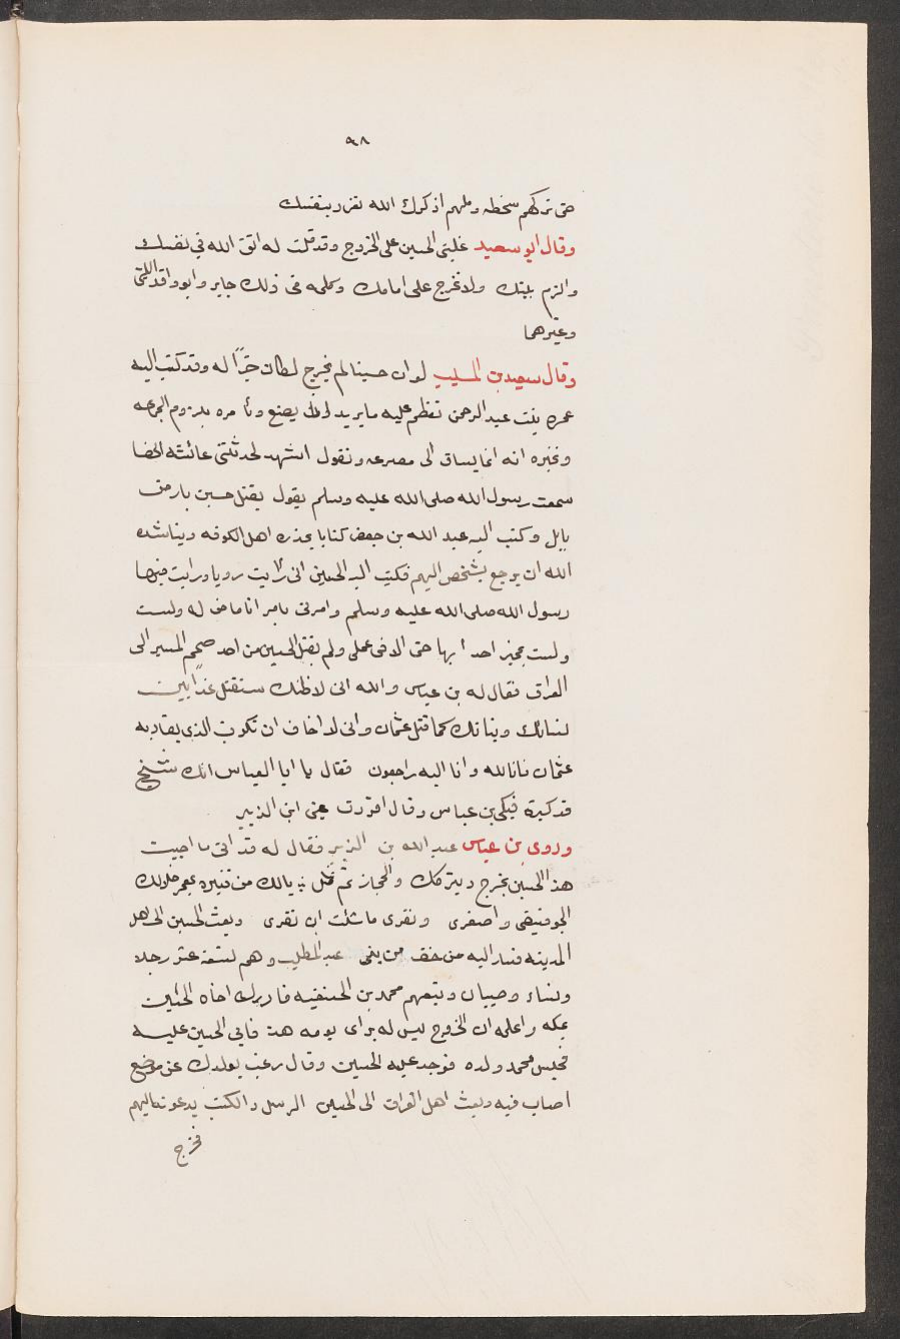 ٩٨
حتى تركهم سخطه وملهم اذكرك الله تغرر بنفسك
وقال ابو سعيد غلبنى الحسين على الخروج وقد قلت له اتق الله في نفسك
والزم بيتك ولا تخرج على امامك وكلمه فى ذلك جابر وابو واقد الليثى
وغيرهما
وقال سعيد بن المسيب لو ان حسينا لم يخرج لكان خيرًا له وقد كتب اليه
عمره بنت عبد الرحمن تعظم عليه ما يريد ان يصنع وتأمره بلزوم الجماعه
وتخبره انه انما يساق الى مصرعه وتقول اشهد لحدثتنى عائشه انها
سمعت رسول الله صلى الله عليه وسلم يقول يقتل حسين بارض
بابل وكتب اليه عبد الله بن جعفر كتابا يحذره اهل الكوفه ويناشده
الله ان يرجع يشخص اليهم فكتب اليه الحسين انى رأيت رويا ورايت فيها
رسول الله صلى الله عليه وسلم وامرنى بامر انا ماض له ولست
ولست بمخبر احدا بها حتى الاقى عملى ولم يقبل الحسين من احد صمم المسير الى
العراق فقال له بن عباس والله انى لاظنك ستقتل غدًا بين
نسائك وبناتك كما قتل عثمان وانى لاخاف ان تكون الذى يقاد به
عثمان فانا لله وانا اليه راجعون فقال يا ابا العباس انك شيخ
قد كبرة فبكى بن عباس وقال اقررت عين ابن الزبير
وروى بن عباس عبد الله بن الزبير فقال له قد اتى ما احببت
هذ الحسين يخرج ويتركك والحجاز ثم تمثل يالك من قنبره بمعمر خلالك
الجو فبيضى واصفرى ونقرى ما شئت ان تنقرى وبعث الحسين الى اهل
المدينه فسار اليه من خف من بنى عبد المطلب وهم تسعة عشر رجلا
ونساء وصبيان وتبعهم محمد بن الحنفيه فادرك اخاه الحسين
بمكه واعلمه ان الخروج ليس له براى يومه هذ فابى الحسين عليه
فحبس محمد ولده فوجد عليه الحسين وقال ترغب بولدك عن موضع
اصاب فيه وبعث اهل العراق الى الحسين الرسل والكتب يدعونه اليهم
فخرج